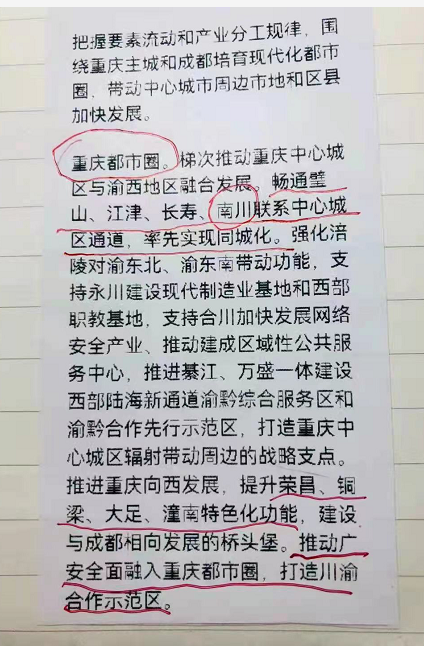 把握要素流动和产业分工规律，围
绕重庆主城和成都培育现代化都市
圈，带动中心城市周边市地和区县
加快发展。
重庆都市圈。梯次推动重庆中心城
区与渝西地区融合发展。畅通璧
山、江津、长寿、南川联系中心城
区通道，率先实现同城化。强化涪
陵对渝东北、渝东南带动功能，支
持永川建设现代制造业基地和西部
职教基地，支持合川加快发展网络
安全产业、推动建成区域性公共服
务中心，推进綦江、万盛一体建设
西部陆海新通道渝黔综合服务区和
渝黔合作先行示范区，打造重庆中
心城区辐射带动周边的战略支点。
推进重庆向西发展，提升荣昌、铜
梁、大足、潼南特色化功能，建设
与成都相向发展的桥头堡。推动广
安全面融入重庆都市圈，打造川渝
合作示范区。